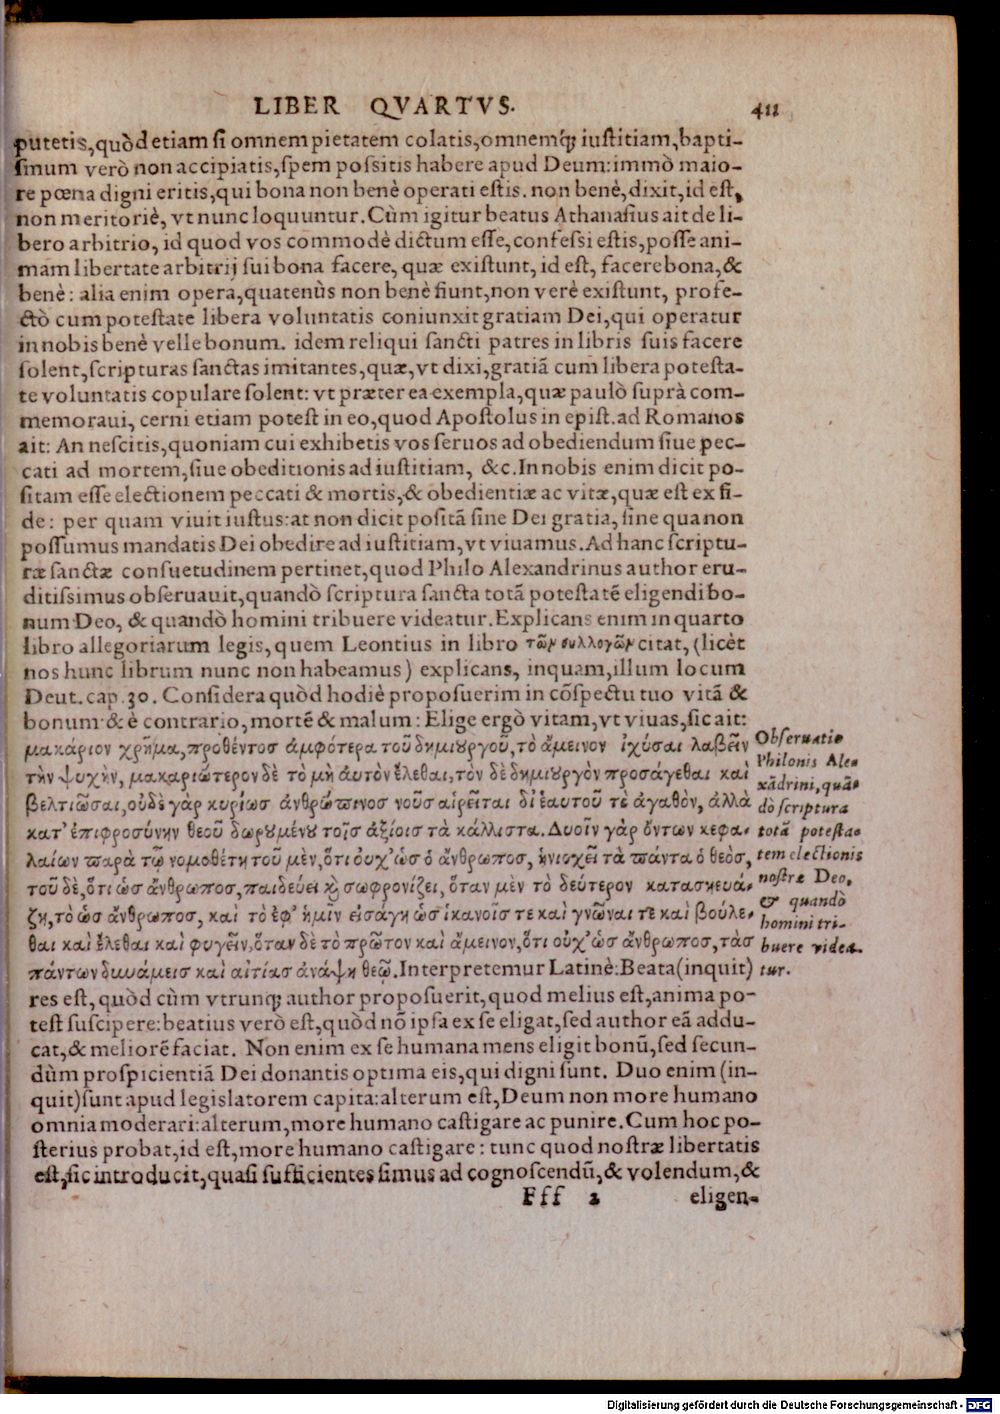 LIBER QVARTVS. 411
putetis, quòd etiam si omnem pietatem colatis, omnemq́; iustitiam, bapti-
smum verò non accipiatis, spem possitis habere apud Deum: immò maio-
re pœna digni eritis, qui bona non benè operati estis. non benè, dixit, id est,
non meritoriè, vt nunc loquuntur. Cùm igitur beatus Athanasius ait de li-
bero arbitrio, id quod vos commodè dictum esse, confessi estis, posse ani-
mam libertate arbitrij sui bona facere, quæ existunt, id est, facere bona, &
benè: alia enim opera, quatenùs non benè fiunt, non verè existunt, profe-
ctò cum potestate libera voluntatis coniunxit gratiam Dei, qui operatur
in nobis benè velle bonum. idem reliqui sancti patres in libris suis facere
solent, scripturas sanctas imitantes, quæ, vt dixi, gratiã cum libera potesta-
te voluntatis copulare solent: vt præter ea exempla, quæ paulò suprà com-
memoraui, cerni etiam potest in eo, quod Apostolus in epist. ad Romanos
ait: An nescitis, quoniam cui exhibetis vos seruos ad obediendum siue pec-
cati ad mortem, siue obeditionis ad iustitiam, &c. In nobis enim dicit po-
sitam esse electionem peccati & mortis, & obedientiæ ac vitæ, quæ est ex fi-
de: per quam viuit iustus: at non dicit positã sine Dei gratia, sine qua non
possumus mandatis Dei obedire ad iustitiam, vt viuamus. Ad hanc scriptu-
ræ sanctæ consuetudinem pertinet, quod Philo Alexandrinus author eru-
ditissimus obseruauit, quandò scriptura sancta totã potestatẽ eligendi bo-
num Deo, & quandò homini tribuere videatur. Explicans enim in quarto
libro allegoriarum legis, quem Leontius in libro τῶν συλλογῶν citat, (licèt
nos hunc librum nunc non habeamus) explicans, inquam, illum locum
Deut. cap. 30. Considera quòd hodiè proposuerim in cõspectu tuo vitã &
bonum & è contrario, mortẽ & malum: Elige ergò vitam, vt viuas, sic ait:
μακάριον χρῆμα, προθέντος ἀμφότερα τοῦ δημιουργοῦ, τὸ ἄμεινον ἰχύσαι λαβεῖν
τὴν ψυχὴν, μακαριώτερον δὲ τὸ μὴ ἀυτὸν ἔλεθαι, τὸν δὲ δημιουργὸν προσάγεθαι καὶ
βελτιῶσαι, οὐδὲ γὰρ κυρίως ἀνθρώπινος νοῦς αἱρεῖται δι᾽ ἑαυτοῦ τὸ ἀγαθὸν, ἀλλὰ
κατ᾽ ἐπιφροσύνην θεοῦ δωρουμένου τοῖς ἀξίοις τὰ κάλλιστα. Δυοῖν γὰρ ὄντων κεφα-
λαίων παρὰ τῷ νομοθέτῃ τοῦ μὲν, ὅτι οὐχ᾽ ὡς ὁ ἄνθρωπος, ἡνιοχεῖ τὰ πάντα ὁ θεὸς,
τοῦ δὲ, ὅτι ὡς ἄνθρωπος, παιδεύει καὶ σωφρονίζει, ὅταν μὲν τὸ δεύτερον κατασκευά-
ζῃ, τὸ ὡς ἄνθρωπος, καὶ τὸ ἐφ᾽ ἡμῖν εἰσάγῃ ὡς ἱκανοῖς τε καὶ γνῶναι τε καὶ βούλε-
θαι καὶ ἔλεθαι καὶ φυγεῖν, ὅταν δὲ τὸ πρῶτον καὶ ἄμεινον, ὅτι οὐχ᾽ ὡς ἄνθρωπος, τὰς
πάντων δυνάμεις καὶ αἰτίας ἀνάψῃ θεῷ. Interpretemur Latinè: Beata (inquit)
res est, quòd cùm vtrunq; author proposuerit, quod melius est, anima po-
test suscipere: beatius verò est, quòd nõ ipsa ex se eligat, sed author eã addu-
cat, & meliorẽ faciat. Non enim ex se humana mens eligit bonũ, sed secun-
dùm prospicientiã Dei donantis optima eis, qui digni sunt. Duo enim (in-
quit) sunt apud legislatorem capita: alterum est, Deum non more humano
omnia moderari: alterum, more humano castigare ac punire. Cum hoc po-
sterius probat, id est, more humano castigare: tunc quod nostræ libertatis
est, sic introducit, quasi sufficientes simus ad cognoscendũ, & volendum, &
Fff 2 eligen-
Obseruatio
Philonis Ale-
xãdrini, quã-
dò scriptura
totã potesta-
tem electionis
nostræ Deo,
& quandò
homini tri-
buere videa-
tur.
Digitalisierung gefördert durch die Deutsche Forschungsgemeinschaft - DFG